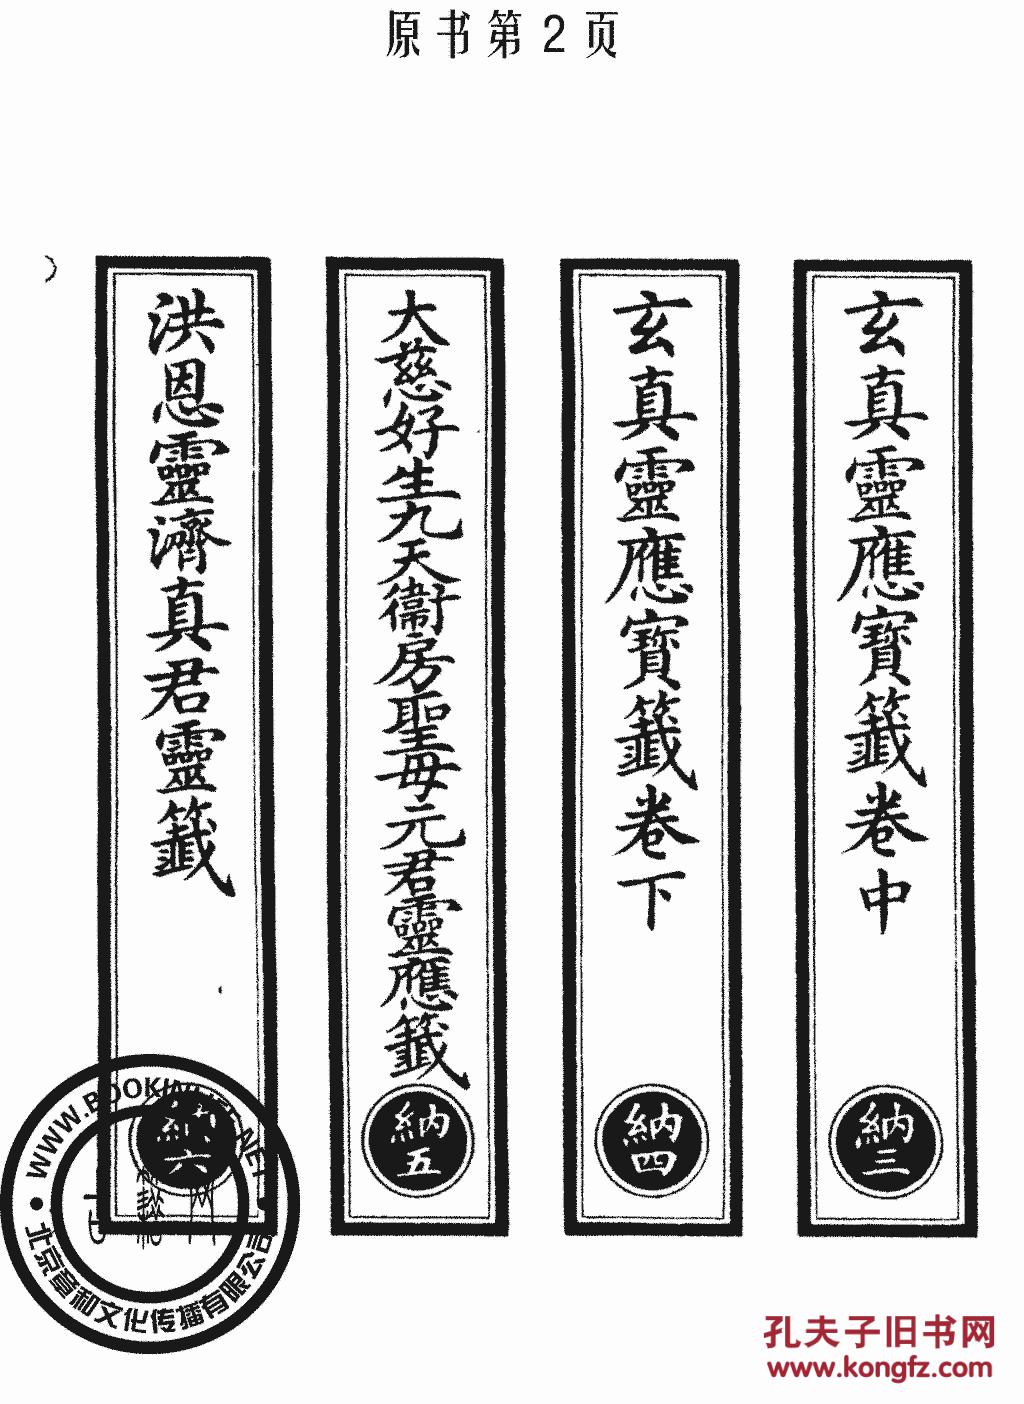 原书第2页
玄真靈應寶籤卷中
納三
玄真靈應寶籤卷下
納四
大慈好生九天衛房聖毋元君靈應籤
納五
洪恩靈濟真君靈籤
納六
北京章和文化传播有限公司
孔夫子旧书网
www.kongfz.com